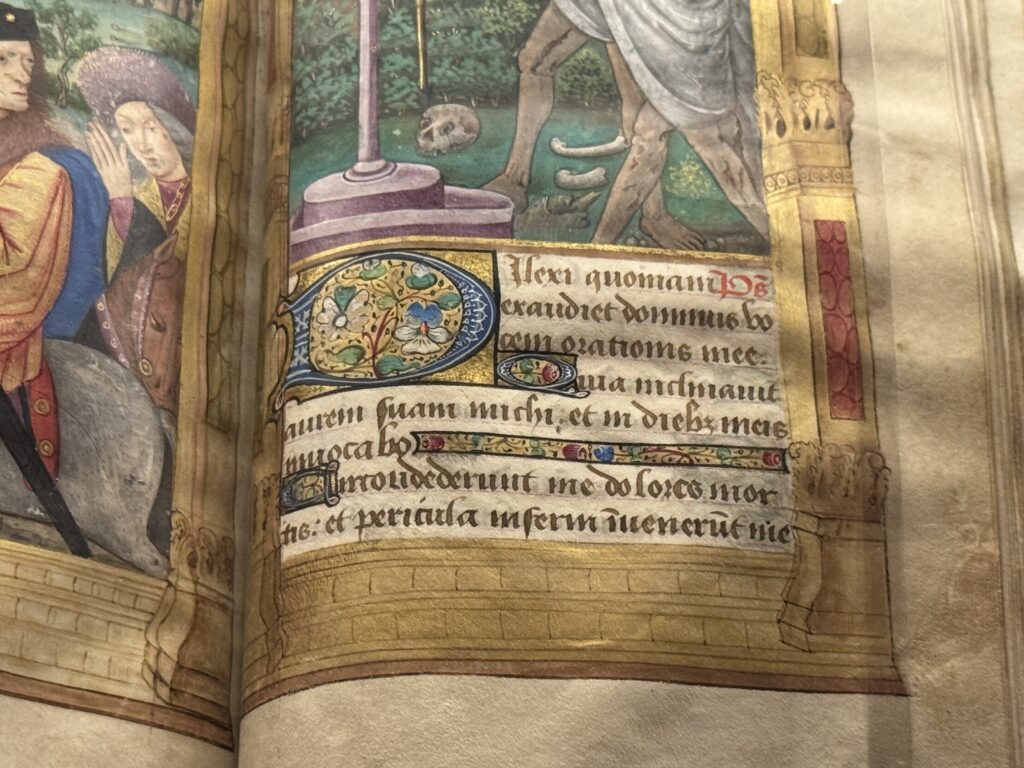 Dilexi quoniam ps̄
exaudiet dominus vo
cem orationis mee:
Quia inclinauit
aurem suam michi: et in diebꝫ meis
inuocabo
Circondederunt me dolores mor
tis: et pericula inferni īuenerūt me